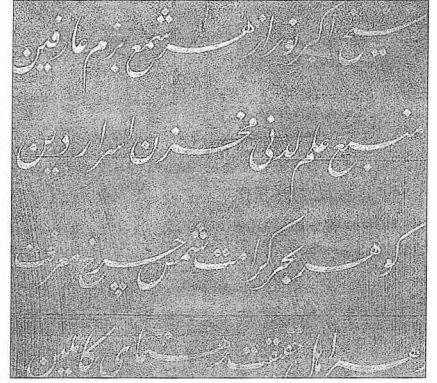 شیخ اکبر نور ازهر شمع بزم عارفین
منبع علم لدنی مخزن اسرار دین
گوهر بحر کرامت شمس چرخ معرفت
رهبر اهل حقیقت رهنمای کاملین